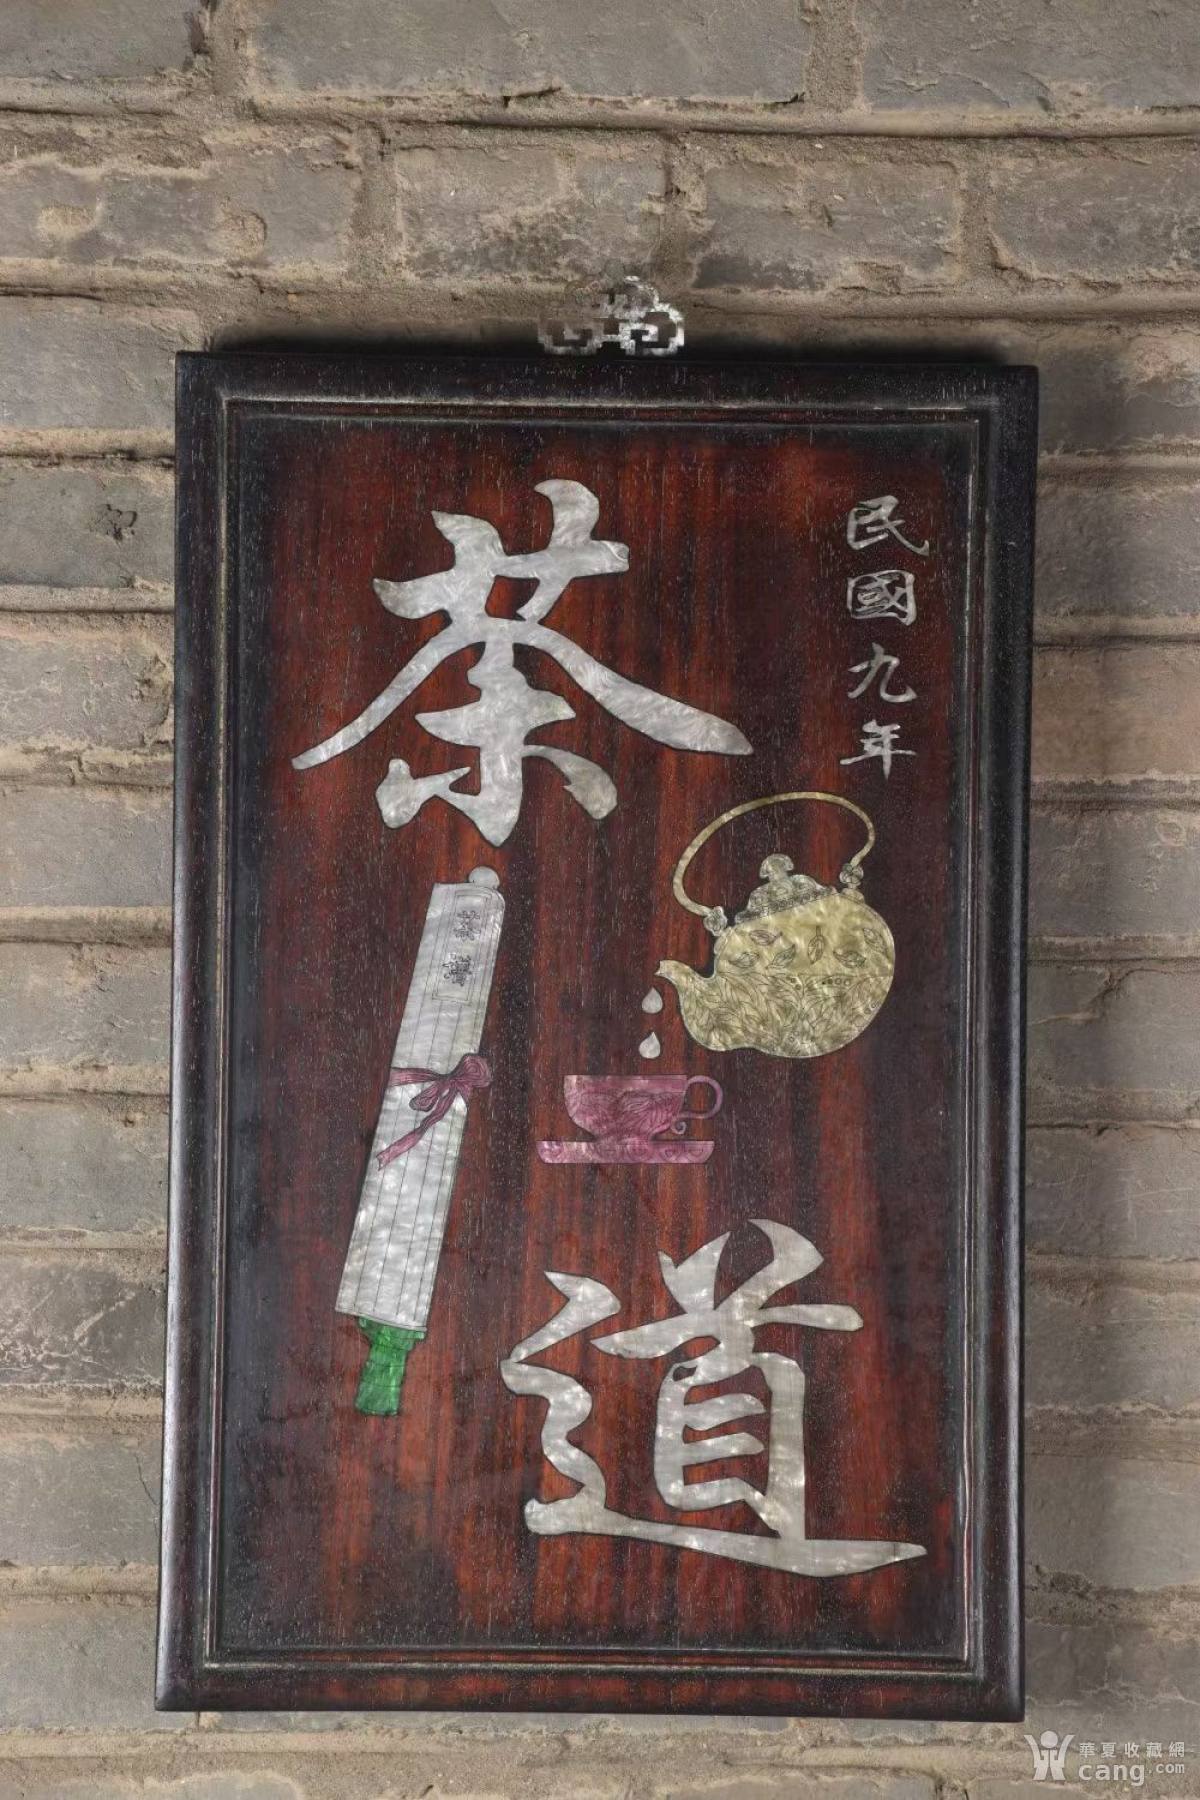 民國九年
茶道
華夏收藏網
cang.com